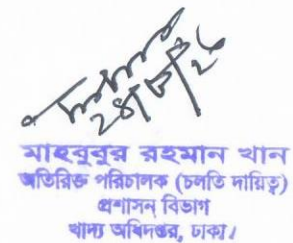 মাহবুবুর রহমান খান
অতিরিক্ত পরিচালক (চলতি দায়িত্ব)
প্রশাসন বিভাগ
খাদ্য অধিদপ্তর, ঢাকা।